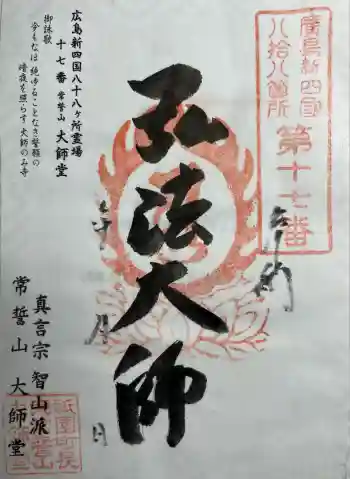 廣島新四國
八拾八箇所
第十七番
奉納
弘法大師
年
月
日
広島新四国八十八ヶ所霊場
十七番 常誓山 大師堂
御詠歌
今もなほ 絶ゆることなき誓願の
暗夜を照らす 大師のみ寺
真言宗 智山派
常誓山 大師堂